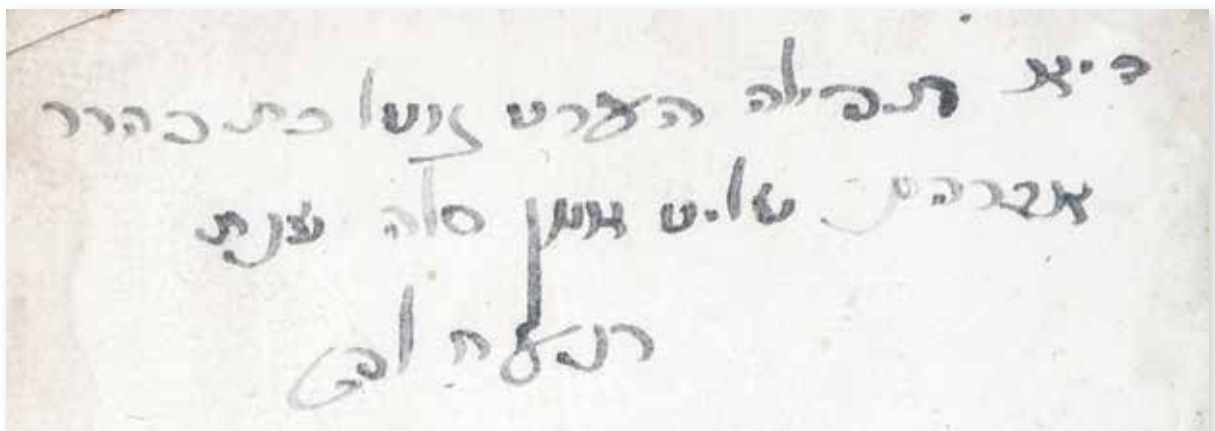 דיא תפילה הערט גיטל בת כהרר
אברהם שליט אמן סלה שנת
לפק